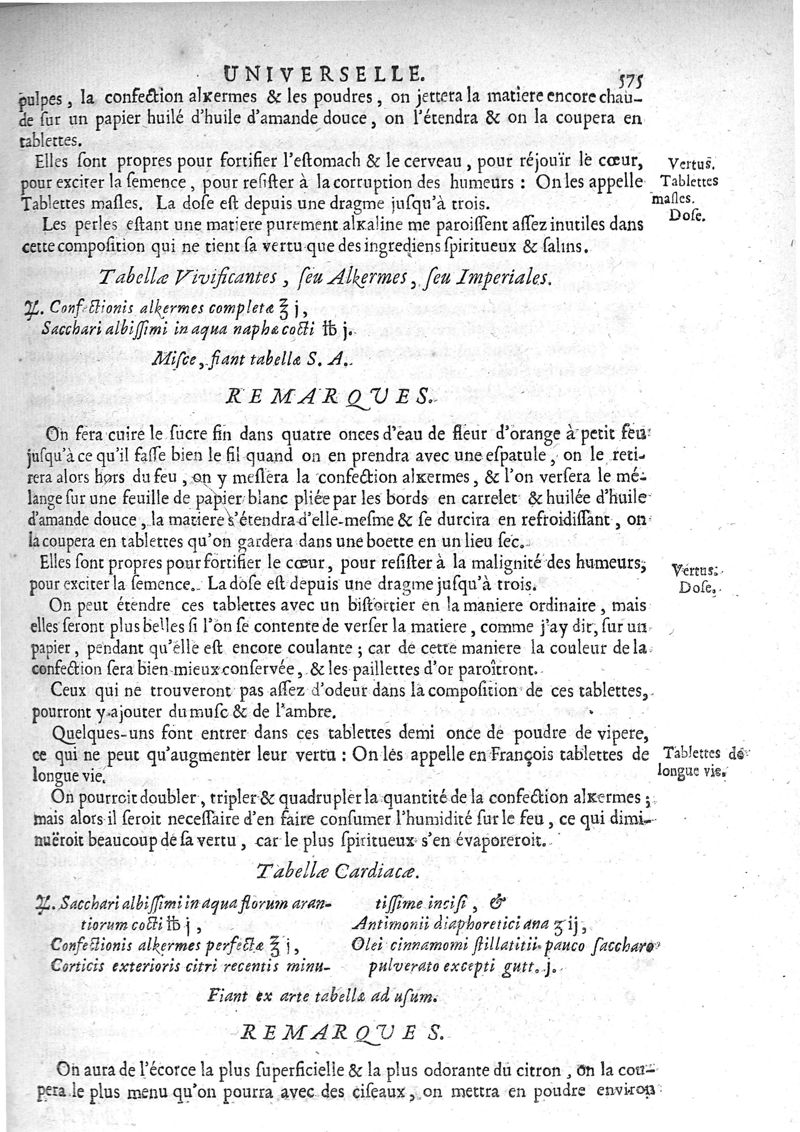 UNIVERSELLE. 575
pulpes, la confection alĸermes & les poudres, on jettera la matiere encore chau-
de ſur un papier huilé d'huile d'amande douce, on l'étendra & on la coupera en
tablettes.
Elles ſont propres pour fortifier l'eſtomach & le cerveau, pour réjoüir le cœur,
pour exciter la ſemence, pour reſiſter à la corruption des humeurs : On les appelle
Tablettes maſles. La doſe eſt depuis une dragme juſqu'à trois.
Vertus.
Tablettes
maſles.
Doſe.
Les perles eſtant une matiere purement alĸaline me paroiſſent aſſez inutiles dans
cette compoſition qui ne tient ſa vertu que des ingrediens ſpiritueux & ſalins.
Tabellæ Vivificantes, ſeu Alkermes, ſeu Imperiales.
℞. Confectionis alkermes completæ ℥ j,
Sacchari albiſſimi in aqua naphæ cocti ℔ j.
Miſce, fiant tabellæ S. A.
REMARQUES.
On fera cuire le ſucre fin dans quatre onces d'eau de fleur d'orange à petit feu
juſqu'à ce qu'il faſſe bien le fil quand on en prendra avec une eſpatule, on le reti-
rera alors hors du feu, on y meſlera la confection alĸermes, & l'on verſera le mé-
lange ſur une feuille de papier blanc pliée par les bords en carrelet & huilée d'huile
d'amande douce, la matiere s'étendra d'elle-meſme & ſe durcira en refroidiſſant, on
la coupera en tablettes qu'on gardera dans une boette en un lieu ſec.
Elles ſont propres pour fortifier le cœur, pour reſiſter à la malignité des humeurs,
pour exciter la ſemence. La doſe eſt depuis une dragme juſqu'à trois.
Vertus.
Doſe.
On peut étendre ces tablettes avec un biſtortier en la maniere ordinaire, mais
elles ſeront plus belles ſi l'on ſe contente de verſer la matiere, comme j'ay dit, ſur un
papier, pendant qu'elle eſt encore coulante; car de cette maniere la couleur de la
confection ſera bien mieux conſervée, & les paillettes d'or paroîtront.
Ceux qui ne trouveront pas aſſez d'odeur dans la compoſition de ces tablettes,
pourront y ajouter du muſc & de l'ambre.
Quelques-uns font entrer dans ces tablettes demi once de poudre de vipere,
ce qui ne peut qu'augmenter leur vertu : On les appelle en François tablettes de
longue vie.
Tablettes de
longue vie.
On pourroit doubler, tripler & quadrupler la quantité de la confection alĸermes;
mais alors il ſeroit neceſſaire d'en faire conſumer l'humidité ſur le feu, ce qui dimi-
nuëroit beaucoup de ſa vertu, car le plus ſpiritueux s'en évaporeroit.
Tabellæ Cardiacæ.
℞. Sacchari albiſſimi in aqua florum aran-
tiorum cocti ℔ j,
Confectionis alkermes perfectæ ℥ j,
Corticis exterioris citri recentis minu-
tiſſime inciſi, &
Antimonii diaphoretici ana ʒ ij,
Olei cinnamomi ſtillatitii pauco ſaccharo
pulverato excepti gutt. j.
Fiant ex arte tabellæ ad uſum.
REMARQUES.
On aura de l'écorce la plus ſuperficielle & la plus odorante du citron, on la cou-
pera le plus menu qu'on pourra avec des ciſeaux, on mettra en poudre environ